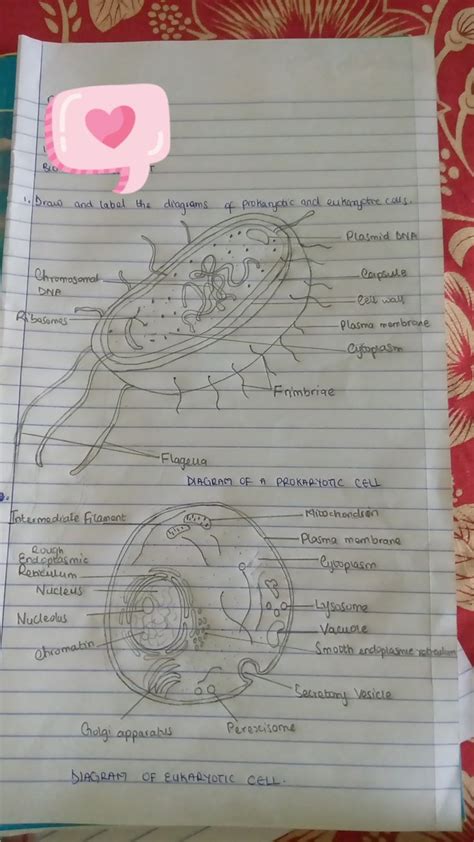 1. Draw and label the diagrams of prokaryotic and eukaryotic cells.
Plasmid DNA
Chromosomal
DNA
Capsule
Cell wall
Ribosomes
Plasma membrane
Cytoplasm
Frimbriae
Flagella
DIAGRAM OF A PROKARYOTIC CELL
Intermediate Filament
Mitochondson
Plasma membrane
Rough
Endoplasmic
Reticulum
Cytoplasm
Nucleus
Lysosome
Nucleolus
Vacuole
Smooth endoplasmic reticulum
Chromatin
Secretory Vesicle
Golgi apparatus
Peroxisome
DIAGRAM OF EUKARYOTIC CELL.